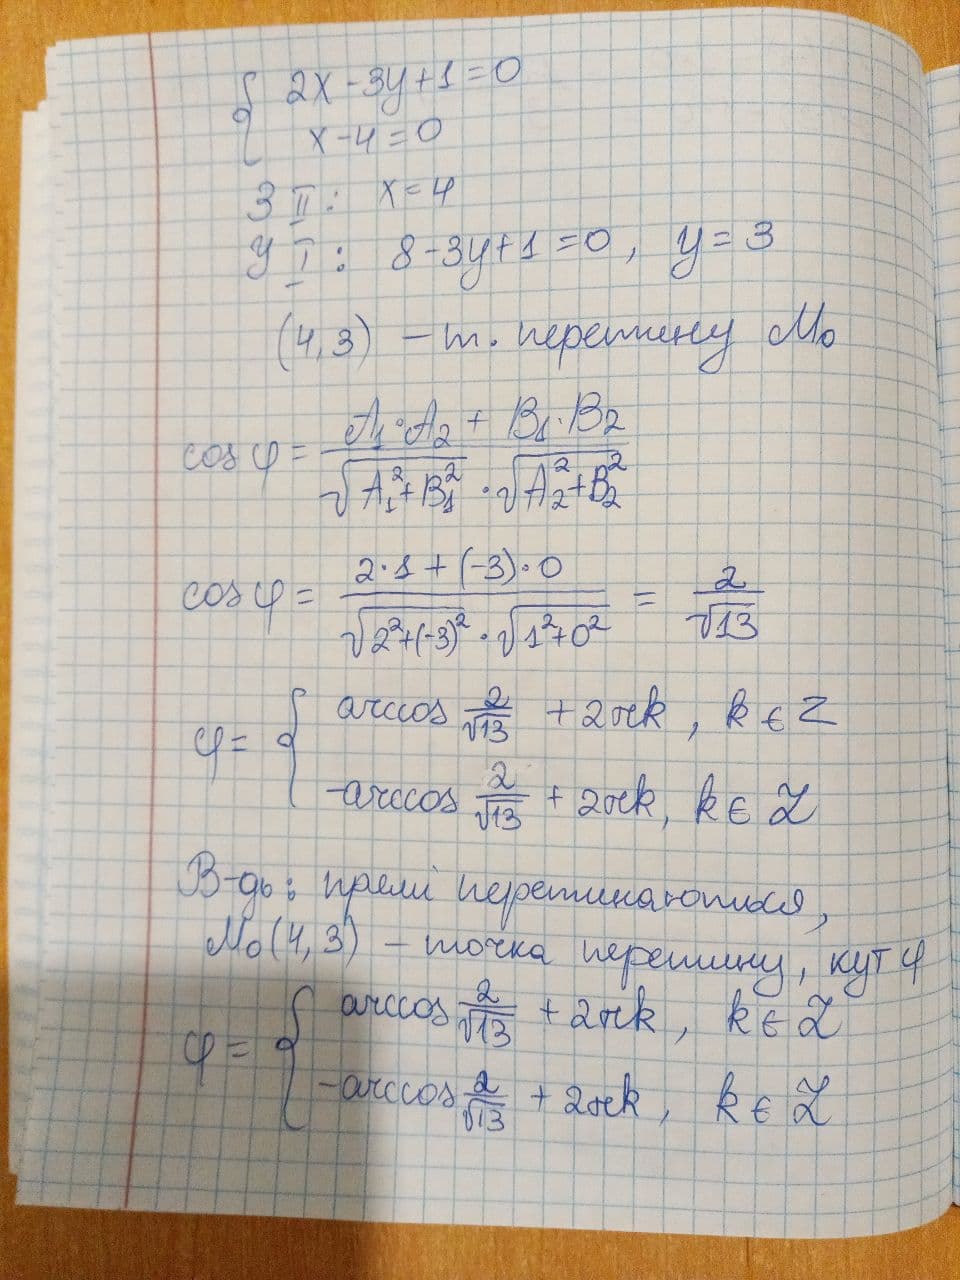 { 2x - 3y + 1 = 0
x - 4 = 0
З II: x = 4
У I: 8 - 3y + 1 = 0, y = 3
(4, 3) – т. перетину M₀
cos φ = (A₁·A₂ + B₁·B₂) / (√(A₁² + B₁²) · √(A₂² + B₂²))
cos φ = (2·1 + (-3)·0) / (√(2² + (-3)²) · √(1² + 0²)) = 2/√13
φ = { arccos 2/√13 + 2πk, k ∈ Z
-arccos 2/√13 + 2πk, k ∈ Z
В-дь: прямі перетинаються,
M₀(4, 3) – точка перетину, кут φ
φ = { arccos 2/√13 + 2πk, k ∈ Z
-arccos 2/√13 + 2πk, k ∈ Z